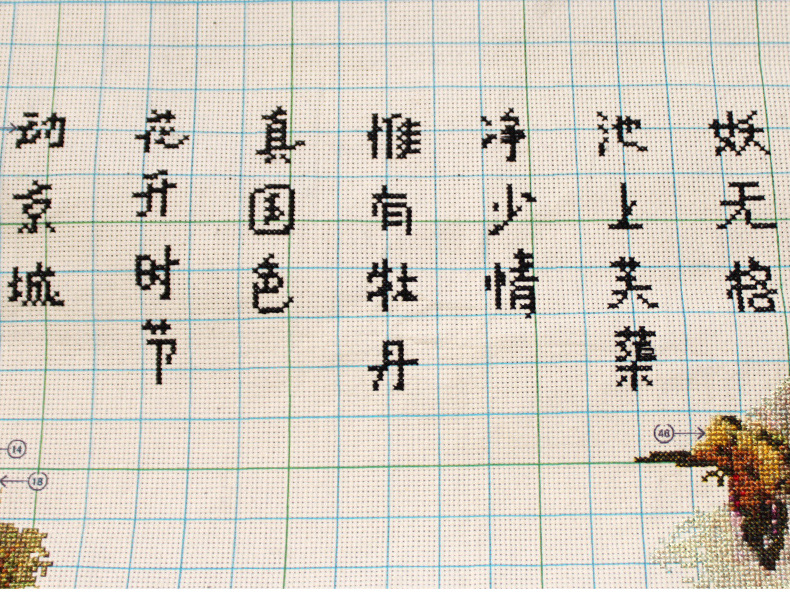 妖无格
池上芙蕖
净少情
惟有牡丹
真国色
花开时节
动京城
14
18
46